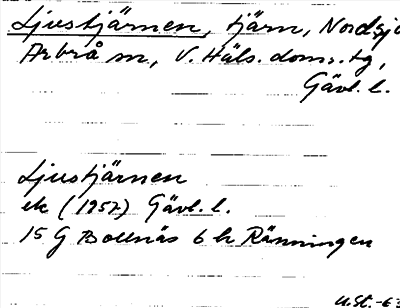 Ljustjärnen, tjärn, Nordsjö
Arbrå sn, V. Häls. doms.tg,
Gävl. l.
Ljustjärnen
ek (1957) Gävl. l.
15 G Bollnäs 6 h Ränningen
U.St.-63